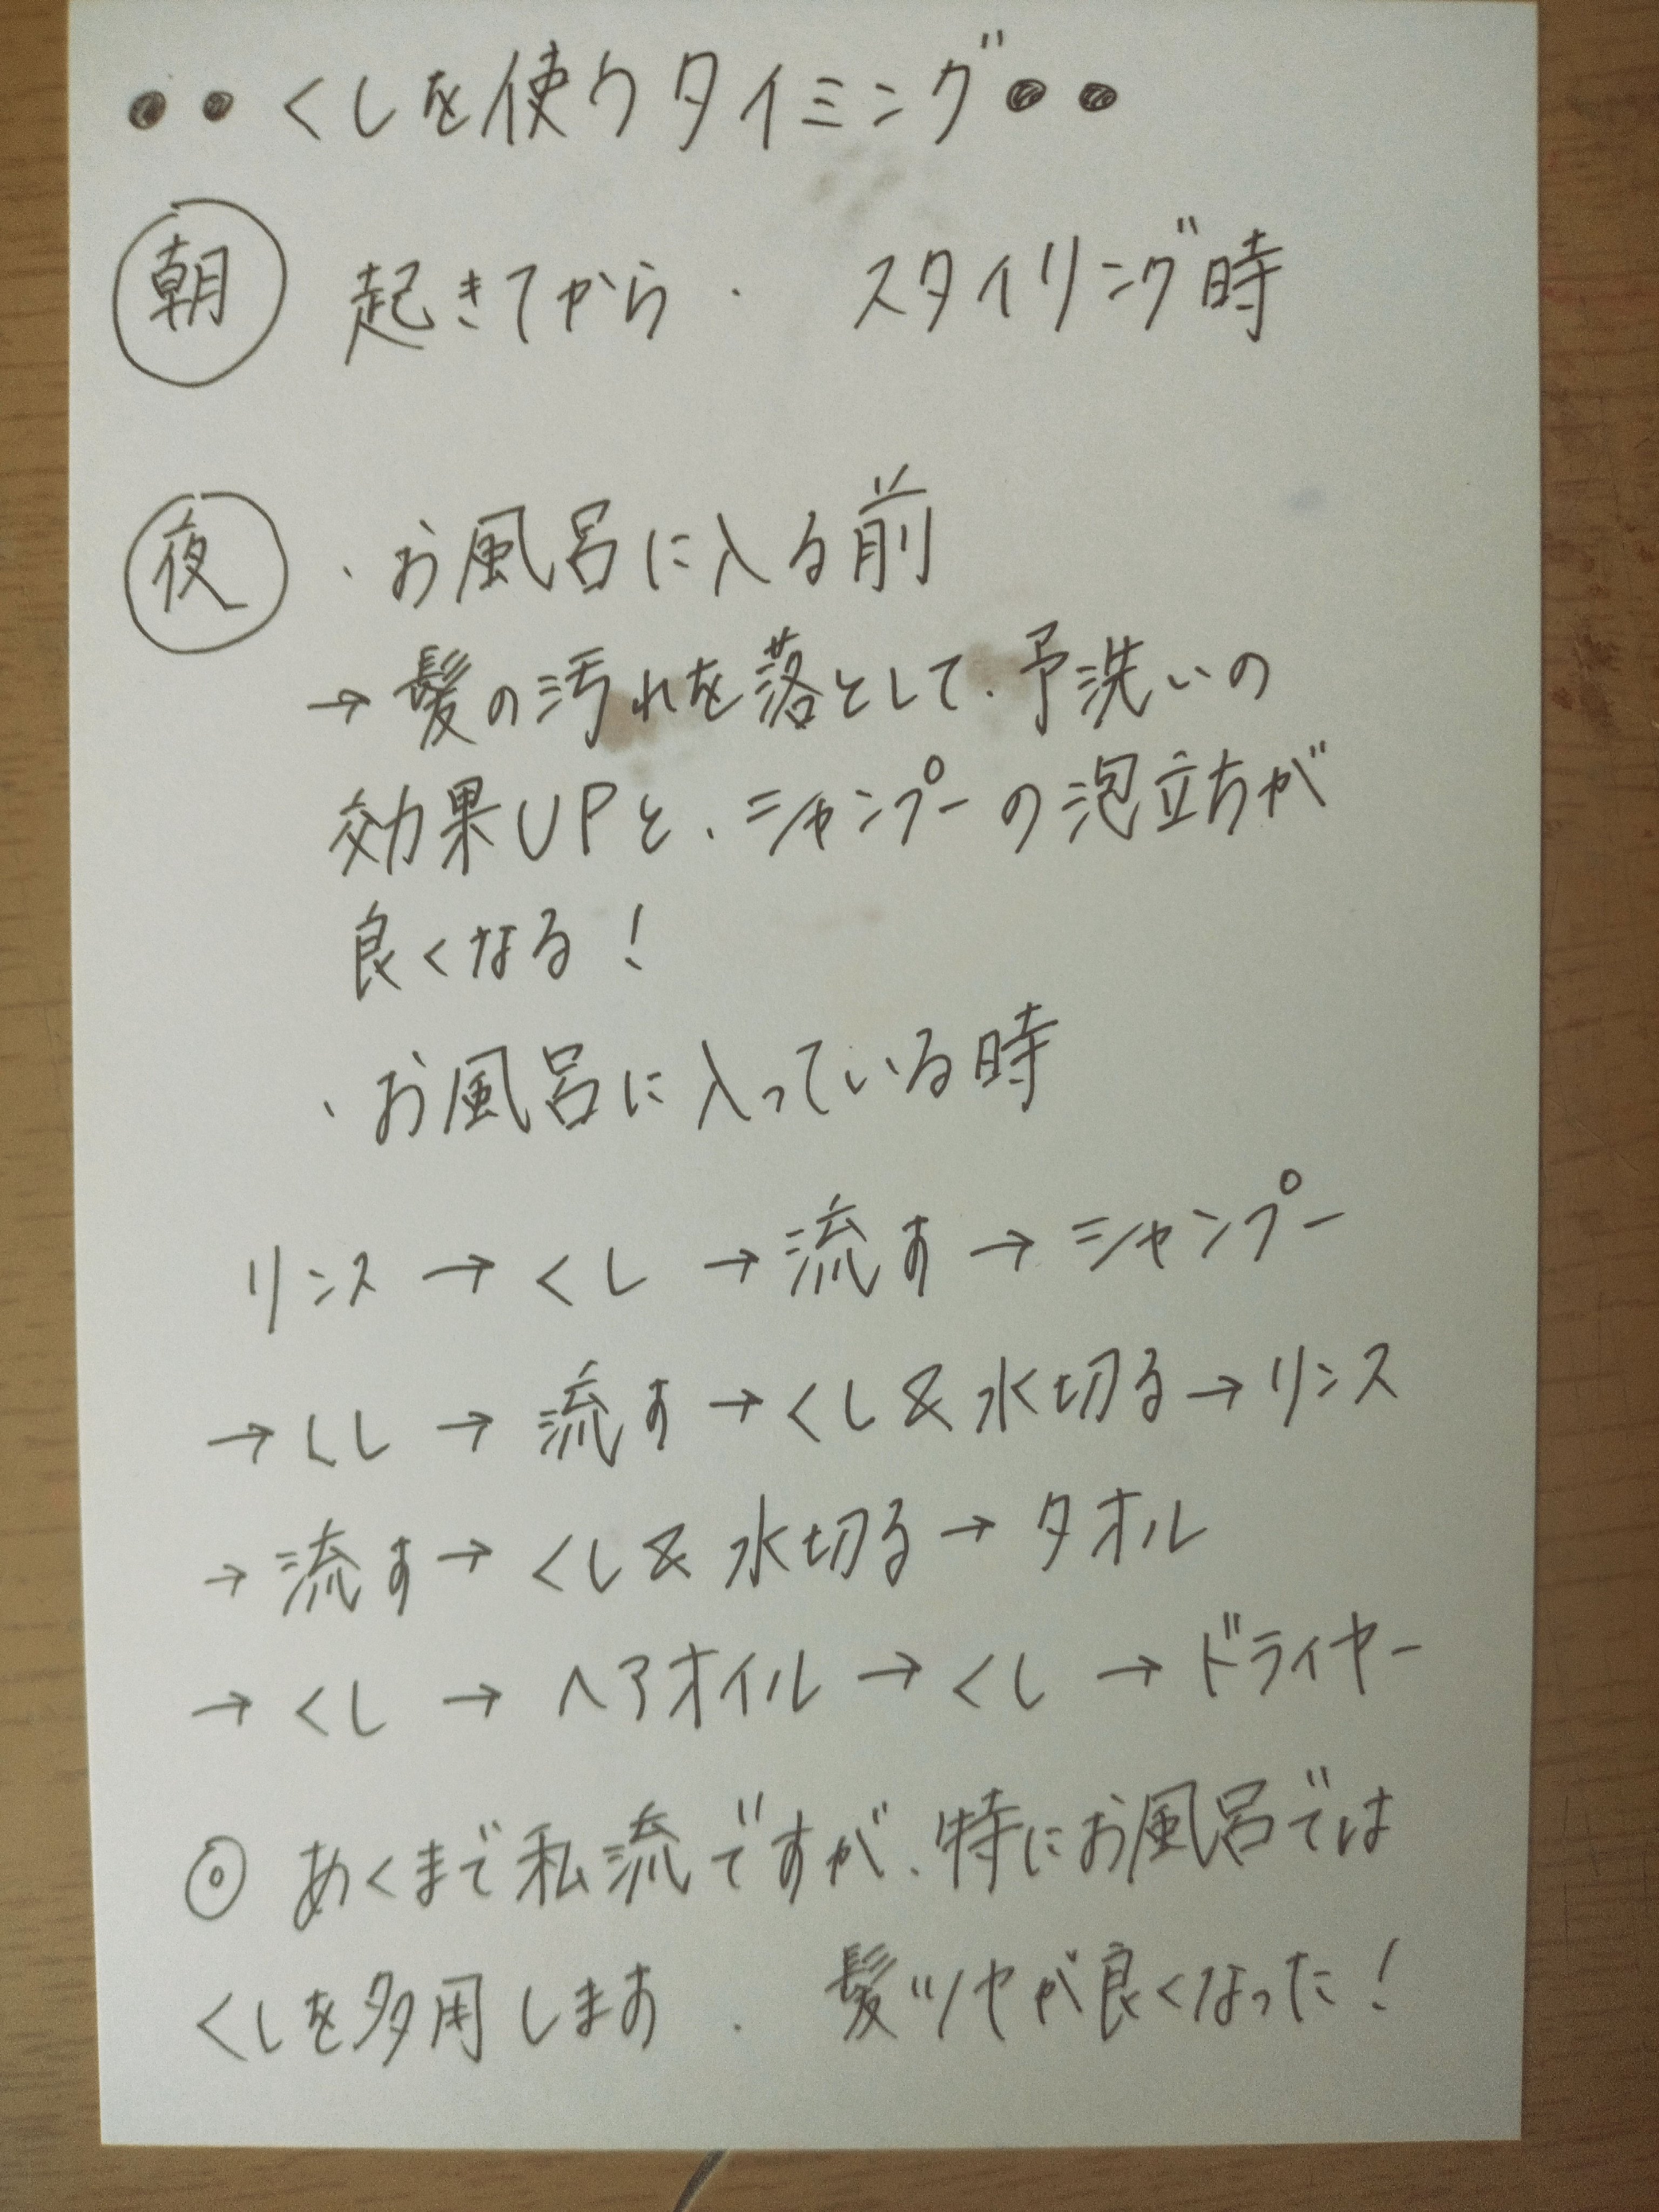 ●●くしを使うタイミング●●
朝 起きてから・ スタイリング時
夜 ・お風呂に入る前
→髪の汚れを落として、予洗いの
効果UPと、シャンプーの泡立ちが
良くなる！
・お風呂に入っている時
リンス→くし→流す→シャンプー
→くし→流す→くし&水切る→リンス
→流す→くし&水切る→タオル
→くし→ヘアオイル→くし→ドライヤー
◎ あくまで私流ですが、特にお風呂では
くしを多用します. 髪ツヤが良くなった！